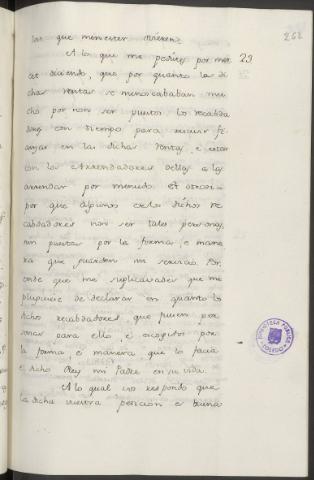 las que menester ovieren
262
A lo que me pedistes por mer 23
cet diciendo, que por quanto las di
chas rentas se menoscababan mu
cho por non ser puestos los recabda
dores con tiempo para recivir fi
anzas en las dichas rentas, e estar
con los Arrendadores dellas a las
arrendar por menudo. Et otrosi
por que algunos de los dichos re
cabdadores non ser tales personas,
nin puestas por la forma, e mane
ra que guarden mi servicio. Por
ende que me suplicavades que me
pluguiese de declarar en quanto los
dichos recabdadores, que fuesen per
sonas para ello, e escogidos por
la forma, e manera que lo facia
el dicho Rey mi Padre en su vida.
A lo qual vos respondo que
la dicha vuestra peticion es buena
BIBLIOTECA PUBLICA
TOLEDO